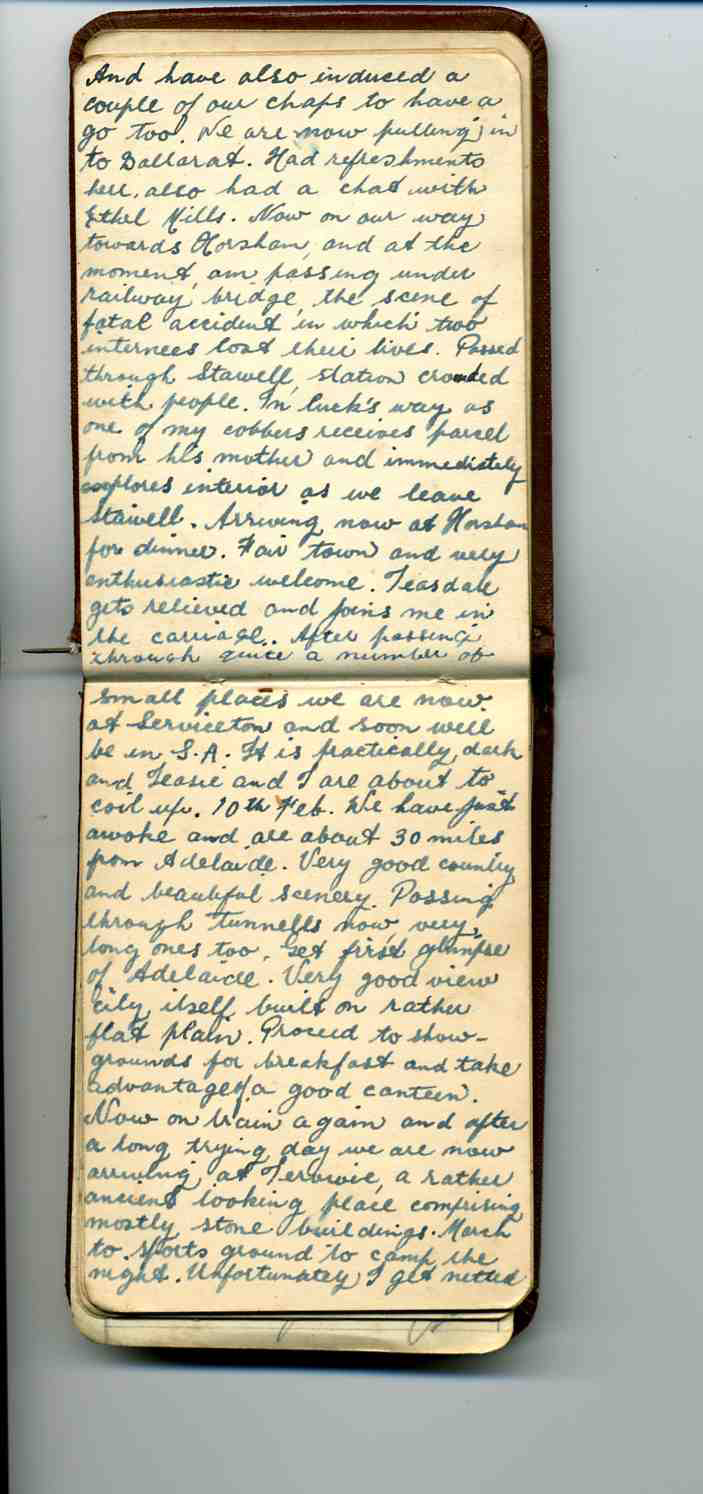 And have also induced a
couple of our chaps to have a
go too. We are now pulling in
to Ballarat. Had refreshments
here, also had a chat with
Ethel Mills. Now on our way
towards Horsham, and at the
moment, am passing under
railway bridge the scene of
fatal accident in which two
internees lost their lives. Passed
through Stawell, station crowded
with people. In luck's way as
one of my cobbers receives parcel
from his mother and immediately
explores interior as we leave
Stawell. Arriving now at Horsham
for dinner. Fair town and very
enthusiastic welcome. Teasdale
gets relieved and joins me in
the carriage. After passing
through quite a number of
small places we are now
at Serviceton and soon will
be in S.A. It is practically dark
and Teasie and I are about to
coil up. 10th Feb. We have just
awoke and are about 30 miles
from Adelaide. Very good country
and beautiful scenery. Passing
through tunnells now, very
long ones too. Get first glimpse
of Adelaide. Very good view
city itself built on rather
flat plain. Proceed to show-
grounds for breakfast and take
advantage of a good canteen.
Now on train again and after
a long trying day we are now
arriving at Terowie, a rather
ancient looking place comprising
mostly stone buildings. March
to sports ground to camp the
night. Unfortunately I get netted